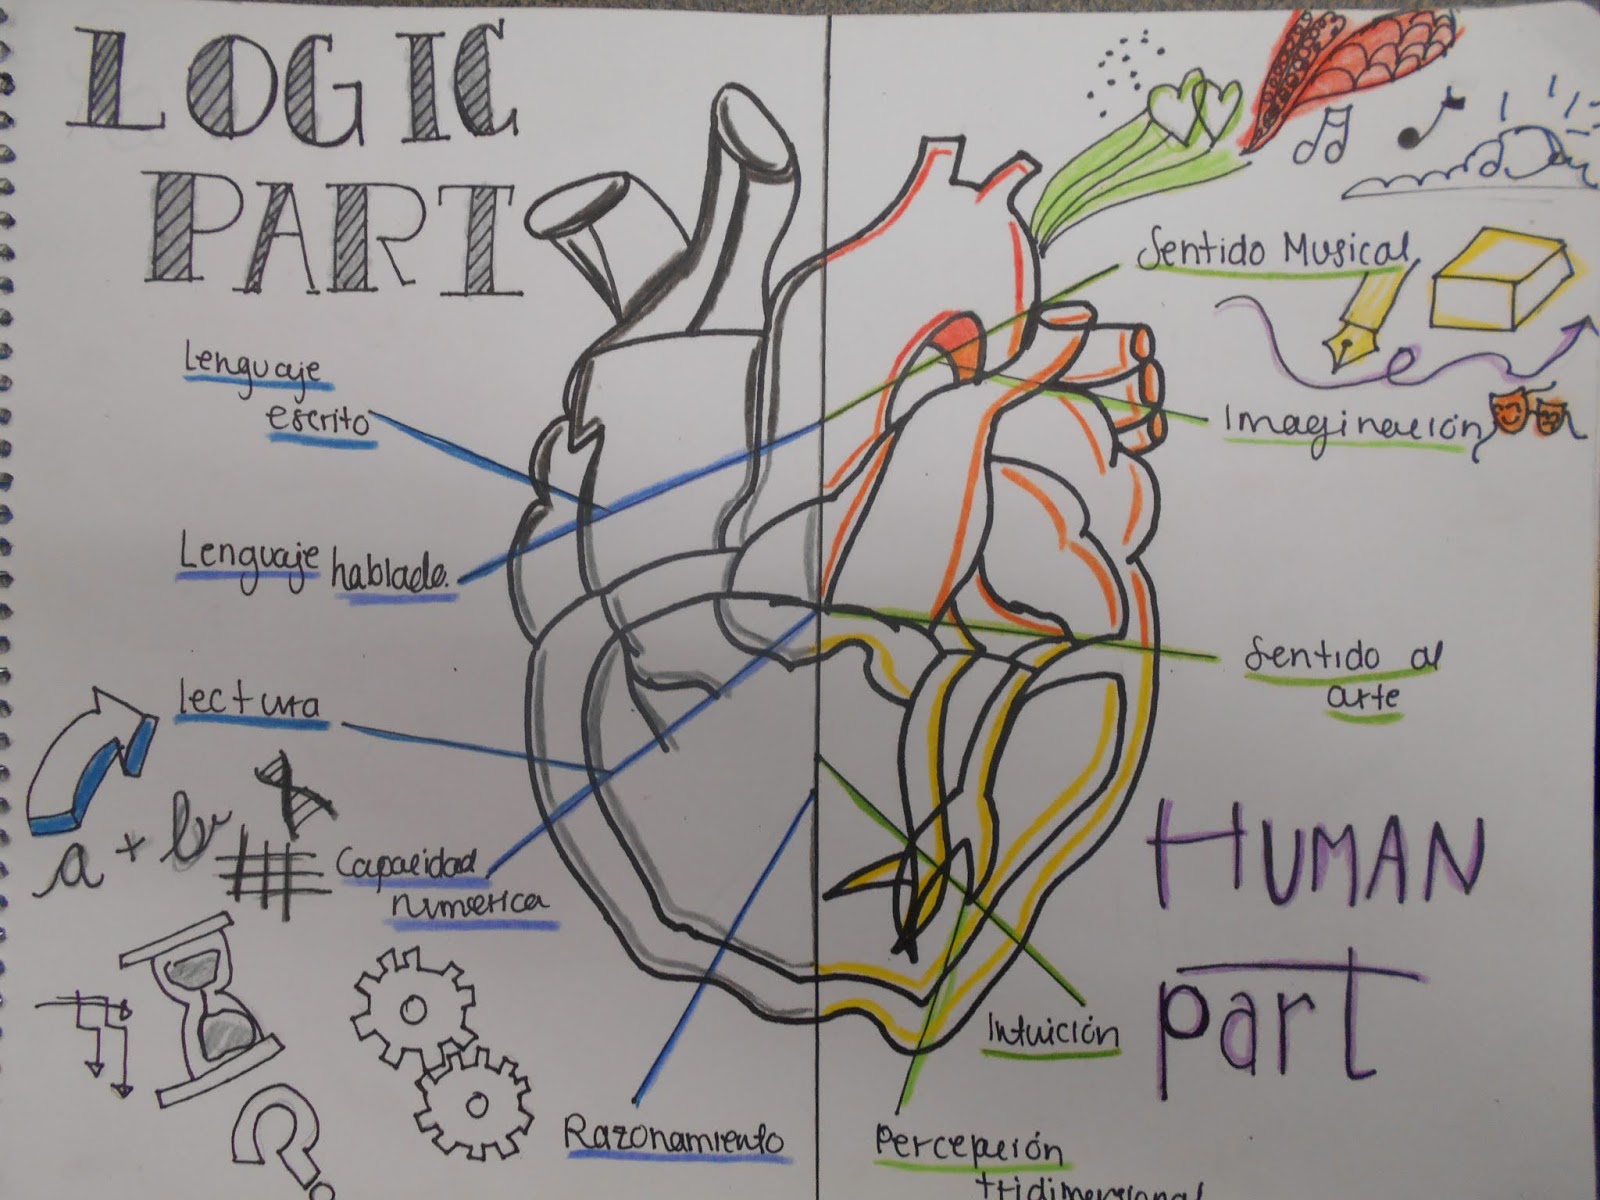 LOGIC
PART
Lenguaje
escrito
Lenguaje hablado.
lectura
a + b
Capacidad
numerica
Razonamiento
Sentido Musical
Imaginación
Sentido al
arte
HUMAN
part
Intuición
Percepción
tridimensional